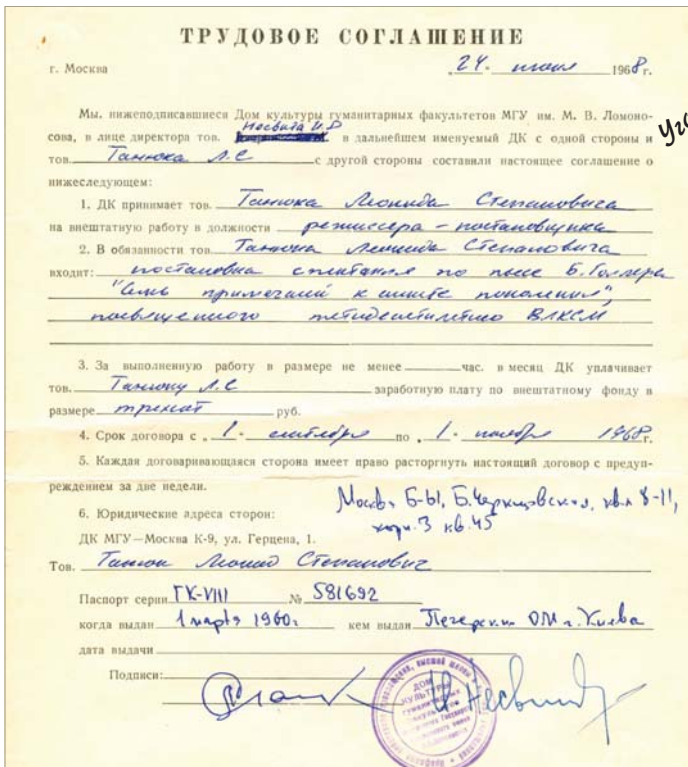 ТРУДОВОЕ СОГЛАШЕНИЕ
г. Москва „24. июня 1968 г.
Мы, нижеподписавшиеся Дом культуры гуманитарных факультетов МГУ им. М. В. Ломоно-
сова, в лице директора тов. Несвита И.Ф в дальнейшем именуемый ДК с одной стороны и
тов. Танюка Л.С с другой стороны составили настоящее соглашение о
нижеследующем:
1. ДК принимает тов. Танюка Леонида Степановича
на внештатную работу в должности режиссера – постановщика
2. В обязанности тов. Танюка Леонида Степановича
входит: постановка спектакля по пьесе Б.Голлера
"Семь примечаний к анкете поколения",
посвященного пятидесятилетию ВЛКСМ
3. За выполненную работу в размере не менее час. в месяц ДК уплачивает
тов. Танюку Л.С заработную плату по внештатному фонду в
размере трехсот руб.
4. Срок договора с „1- сентября по „1- ноября 1968 г.
5. Каждая договаривающаяся сторона имеет право расторгнуть настоящий договор с предуп-
реждением за две недели.
6. Юридические адреса сторон:
Москва Б-61, Б.Черкизовская, кв.л 8-11,
корп.3 кв.45
ДК МГУ—Москва К-9, ул. Герцена, 1.
Тов. Танюк Леонид Степанович
Паспорт серии ГК-VIII № 581692
когда выдан 1 марта 1960г кем выдан Печерским ОМ г.Киева
дата выдачи
Подписи:
ДОМ
КУЛЬТУРЫ
гуманитарных
факультетов